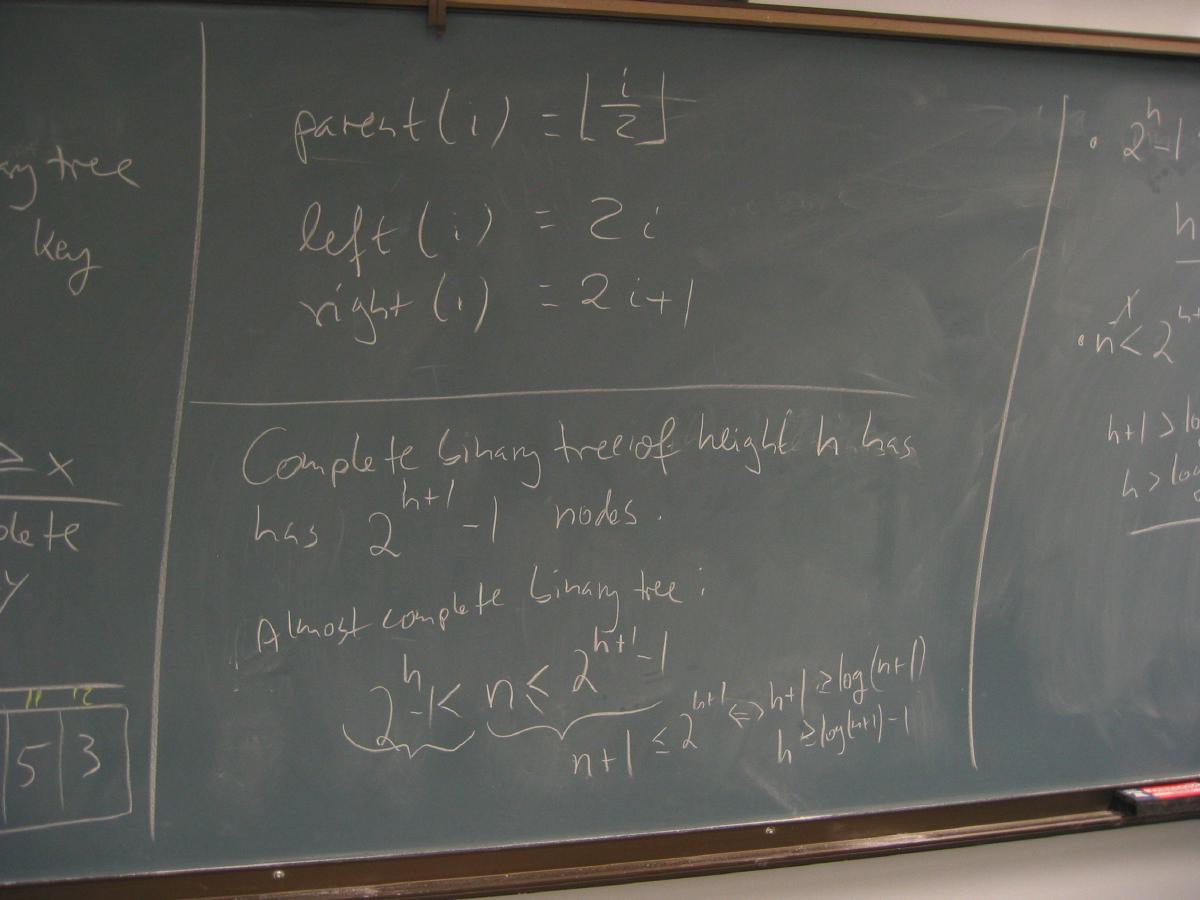 tree
key
≥ x
y
11 12
5 3
parent(i) = ⌊i/2⌋
left(i) = 2i
right(i) = 2i+1
Complete binary tree of height h has
has 2^(h+1) -1 nodes.
Almost complete binary tree:
2^h -1 < n ≤ 2^(h+1) -1
n+1 ≤ 2^(h+1) ⇔ h+1 ≥ log(n+1)
h ≥ log(n+1) - 1
• 2^h -1
h
• n < 2^h+
h+1 > lo
h > log